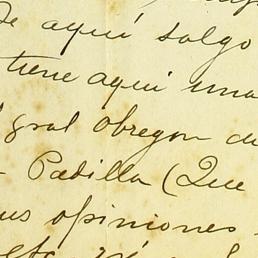 de aquí salgo
tiene aquí una
gral obregon de
Padilla (Que
us opiniones